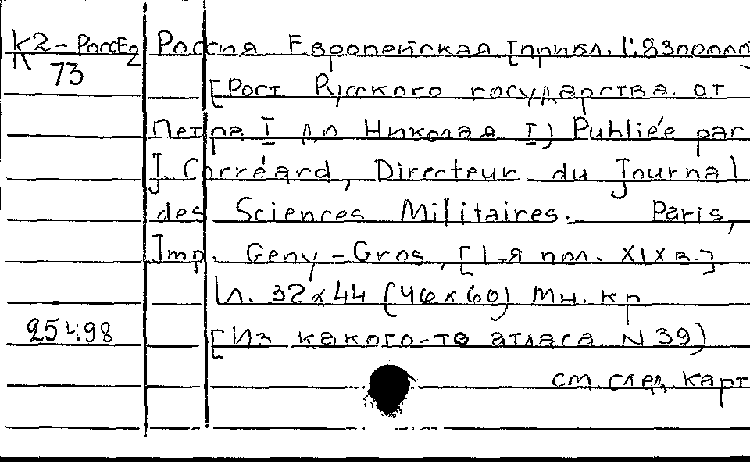 К2-РоссЕ2 Россия Европейская [прибл. 1:8300000
73 [Рост Русского государства от
Петра I до Николая I) Publiée par
J. Corréard, Directeur du Journal
des Sciences Militaires. Paris,
Imp. Geny-Gros, [1-я пол. XIX в.]
1л. 32х44 (46х60) Мн. кр
98 [Из какого-то атласа N 39)
см след карт